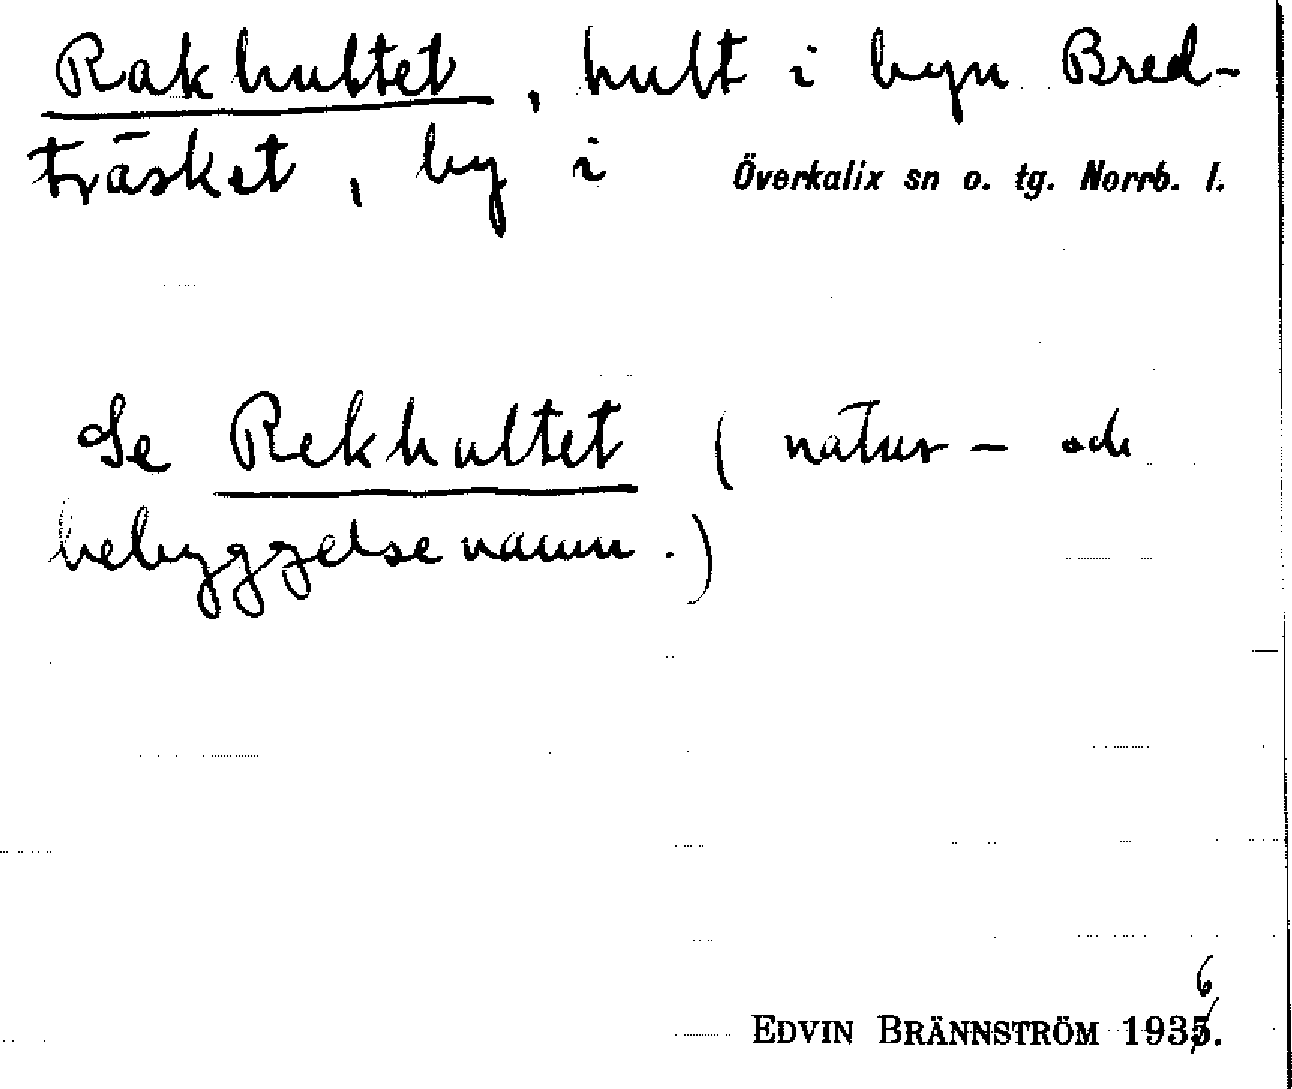 Rakhultet, hult i byn Bred-
träsket, by i Överkalix sn o. tg. Norrb. l.
Se Rekhultet (natur- och
bebyggelsenamn.)
6
EDVIN BRÄNNSTRÖM 1935.